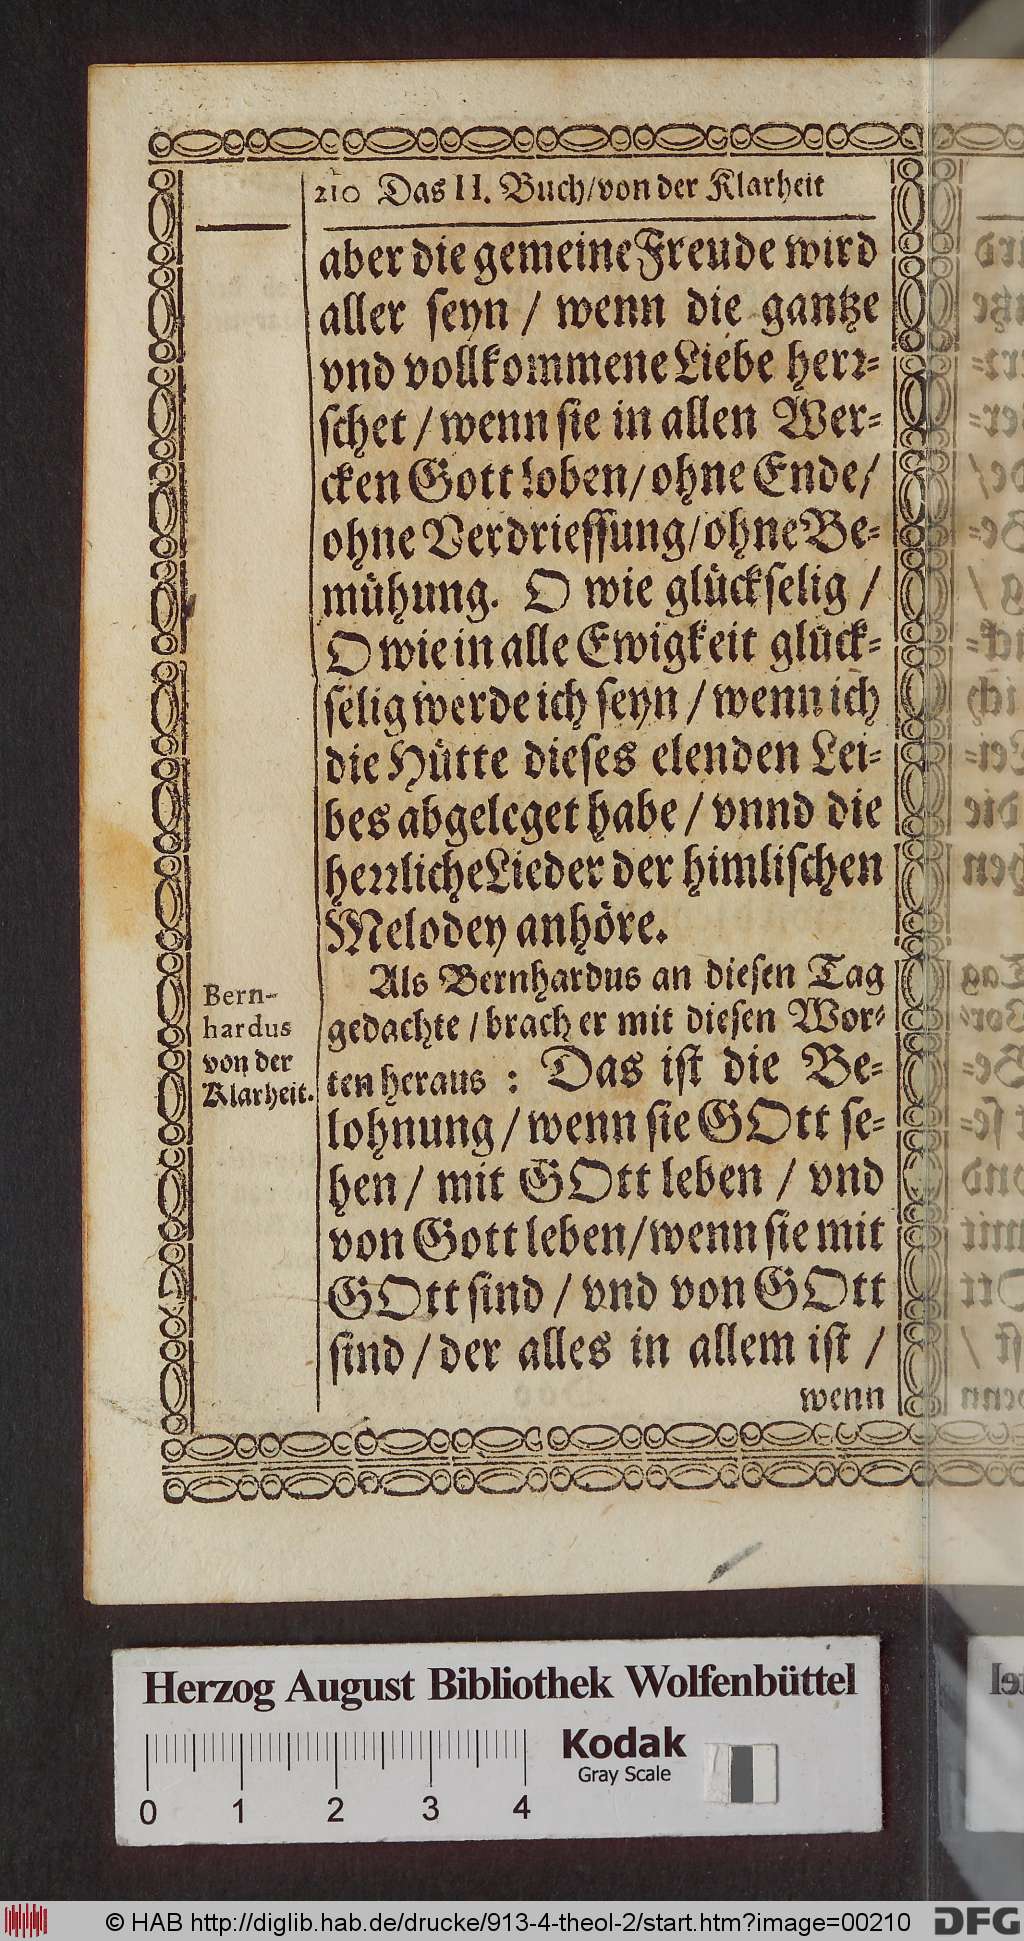 210 Das II. Buch/von der Klarheit
aber die gemeine Freude wird
aller seyn / wenn die gantze
vnd vollkommene Liebe herr-
schet / wenn sie in allen Wer-
cken Gott loben/ ohne Ende/
ohne Verdriessung/ohne Be-
mühung. O wie glückselig /
O wie in alle Ewigkeit glück-
selig werde ich seyn / wenn ich
die Hütte dieses elenden Lei-
bes abgeleget habe / vnnd die
herrliche Lieder der himlischen
Melodey anhöre.
Als Bernhardus an diesen Tag
gedachte / brach er mit diesen Wor-
ten heraus : Das ist die Be-
lohnung / wenn sie GOtt se-
hen / mit GOtt leben / vnd
von Gott leben/wenn sie mit
GOtt sind / vnd von GOtt
sind / der alles in allem ist /
wenn
Bern-
hardus
von der
Klarheit.
Herzog August Bibliothek Wolfenbüttel
Kodak
Gray Scale
0 1 2 3 4
© HAB http://diglib.hab.de/drucke/913-4-theol-2/start.htm?image=00210
DFG